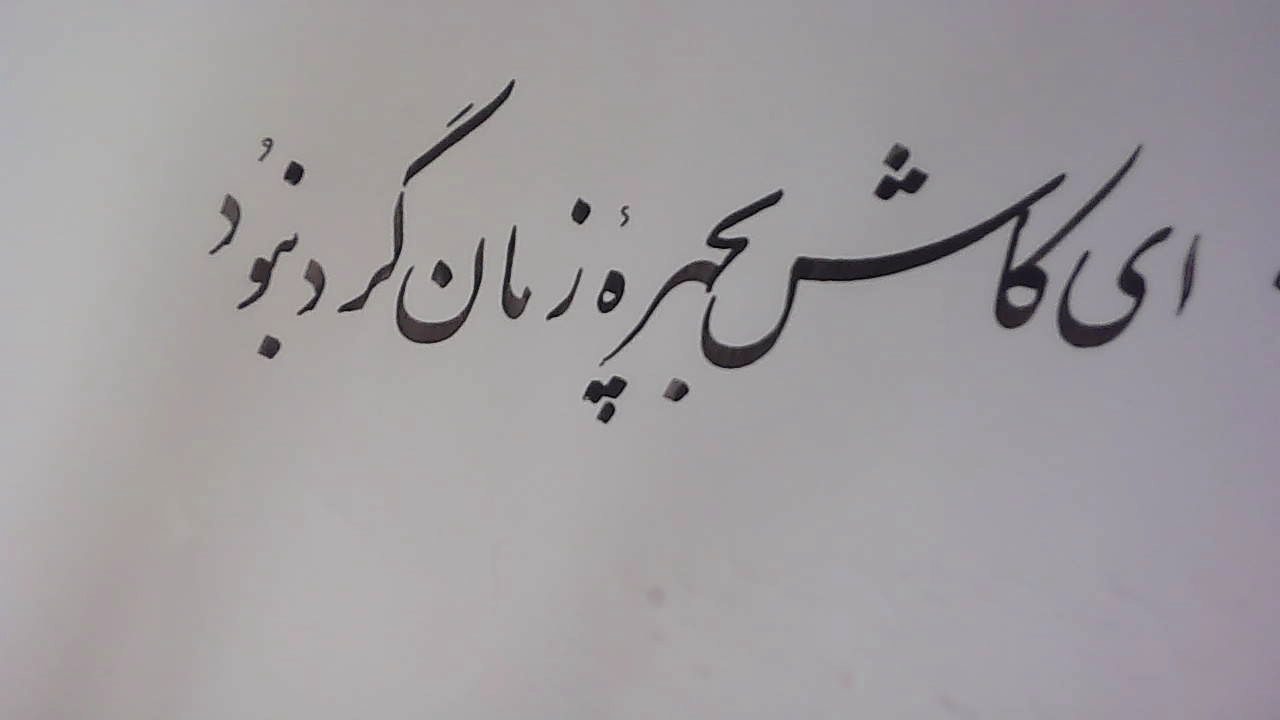 ای کاش بچهرهٔ زمان گرد نبُود